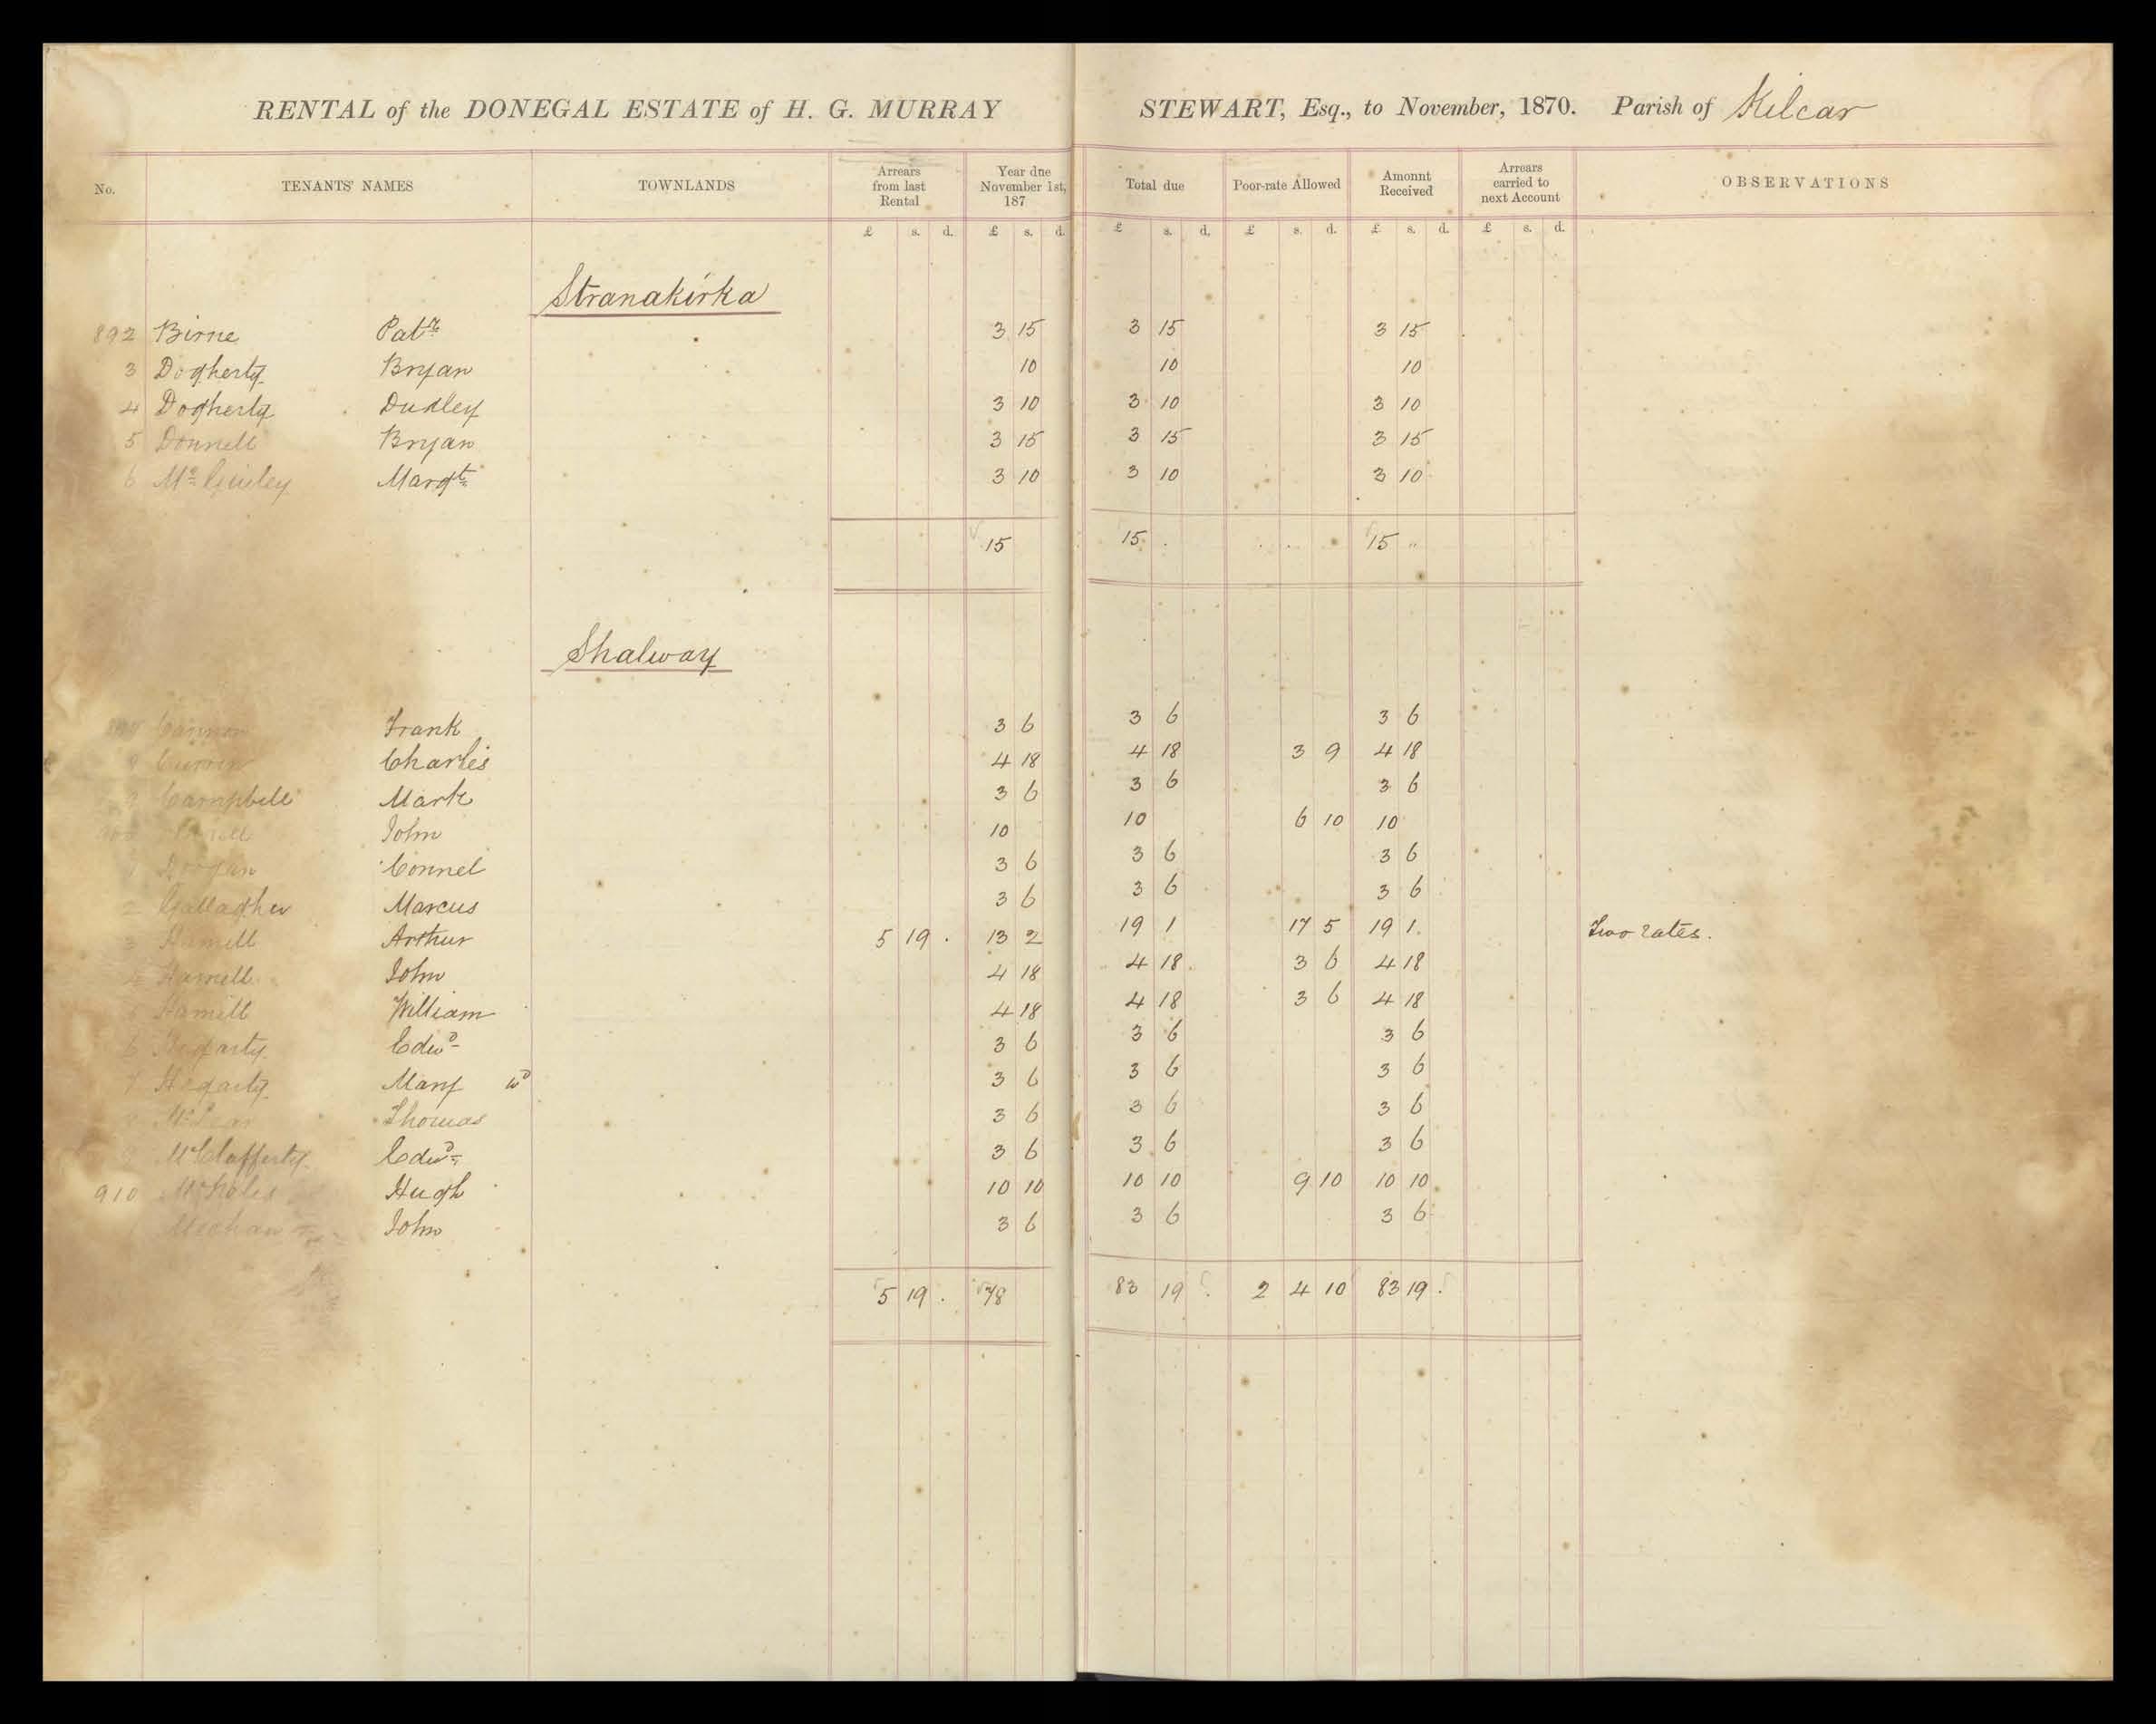 RENTAL of the DONEGAL ESTATE of H. G. MURRAY STEWART, Esq., to November, 1870. Parish of Kilcar
No. TENANTS' NAMES TOWNLANDS Arrears from last Rental Year due November 1st, 187 Total due Poor-rate Allowed Amount Received Arrears carried to next Account OBSERVATIONS
£ s. d. £ s. d. £ s. d. £ s. d. £ s. d. £ s. d.
Stranakirka
892 Birne Patk 3 15 3 15 3 15
3 Dogherty Bryan 10 10 10
4 Dogherty Dudley 3 10 3 10 3 10
5 Donnell Bryan 3 15 3 15 3 15
6 Mc Ginley Margt 3 10 3 10 3 10
15 15 15
Shalway
Cannon Frank 3 6 3 6 3 6
Charles 4 18 4 18 3 9 4 18
Campbell Mark 3 6 3 6 3 6
John 10 10 6 10 10
1 Doogan Connel 3 6 3 6 3 6
2 Gallagher Marcus 3 6 3 6 3 6
3 Hamill Arthur 5 19 . 13 2 19 1 17 5 19 1 Two rates.
Hamill John 4 18 4 18 3 6 4 18
Hamill William 4 18 4 18 3 6 4 18
6 Hegarty Edwd 3 6 3 6 3 6
7 Hegarty Mary wd 3 6 3 6 3 6
Thomas 3 6 3 6 3 6
McClafferty Edwd 3 6 3 6 3 6
910 Hugh 10 10 10 10 9 10 10 10
1 Meehan John 3 6 3 6 3 6
5 19 . 78 83 19 . 2 4 10 83 19 .